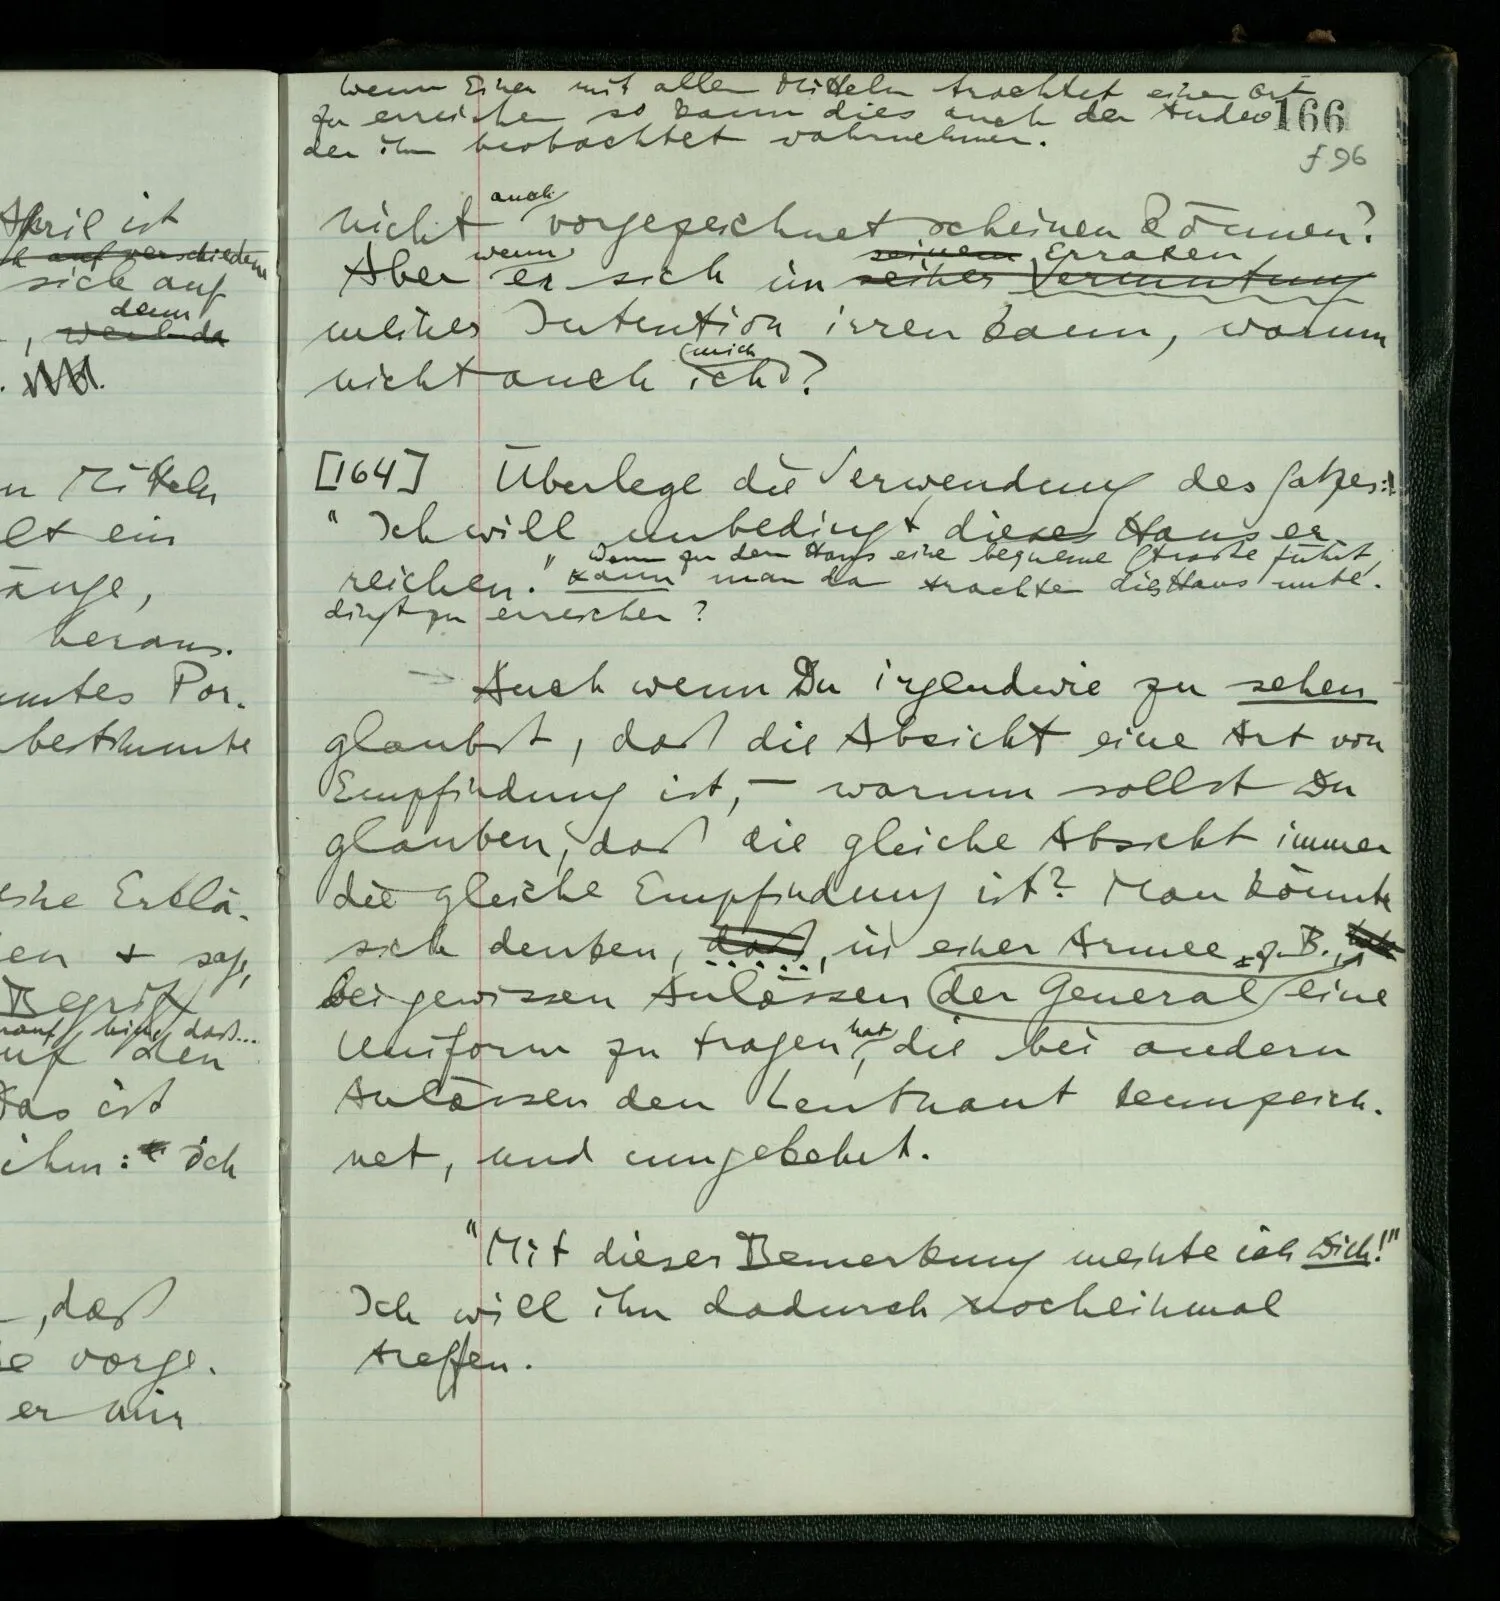 April ist
auf verschiedene
sich auf
denn
, weil da
n Mitteln
lt ein
änge,
heraus.
mtes Por-
bestimmte
eine Erklä-
en + sage,
Begriff
darauf hin, dass...
auf den
Das ist
ihm: " ich
, daß
e vorge-
er mir
Wenn Einer mit allen Mitteln trachtet einen Ort
zu erreichen so kann dies auch der Andere
der ihn beobachtet wahrnehmen.
166
f. 96
auch
nicht vorgezeichnet scheinen können?
wenn seinem Erraten
Aber er sich in seiner Vermutung
meiner Intention irren kann, warum
mich
nicht auch ich?
[164] Überlege die Verwendung des Satzes:
"Ich will unbedingt dieses Haus er
Wenn zu dem Haus eine bequeme Straße führt,
reichen." kann man da trachten dies Haus unbe-
dingt zu erreichen?
Auch wenn Du irgendwie zu sehen
glaubst, daß die Absicht eine Art von
Empfindung ist, – warum sollst Du
glauben, daß die gleiche Absicht immer
die gleiche Empfindung ist? Man könnte
sich denken, daß, in einer Armee z.B., hat
bei gewissen Anlässen der General eine
hat
Uniform zu tragen, die bei andern
Anlässen den Leutnant kennzeich-
net, und umgekehrt.
"Mit dieser Bemerkung meinte ich Dich!"
Ich will ihn dadurch nocheinmal
treffen.